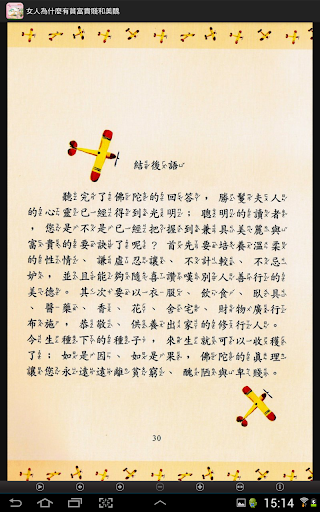 女人為什麼有貧富貴賤和美醜
結後語
聽完了佛陀的回答，勝鬘夫人
的心靈已經得到光明；聰明的讀者
，您是不是已經把握到兼具美麗與
富貴的要訣了呢？首先要培養溫柔
的性情、謙虛忍讓、不計較、不忌
妒，並且能夠隨喜讚嘆別人善行的
美德。其次要以衣服、飲食、臥具
、醫藥、香、花、舍宅、財物廣行
布施，恭敬、供養出家的修行人。
今生種下的種子，來生就可以收穫
了；如是因、如是果，佛陀的真理
讓您永遠遠離貧窮、醜陋與卑賤。
30
15:14